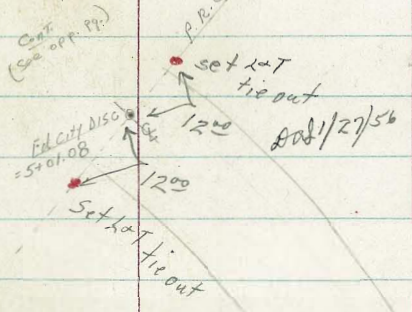 Cont.
(See opp. pg.)
P.R.
set L&T
tie out
12⁰⁰
Fd City Disc
= 5+01.08
1/27/56
12⁰⁰
Set L&T
tie out